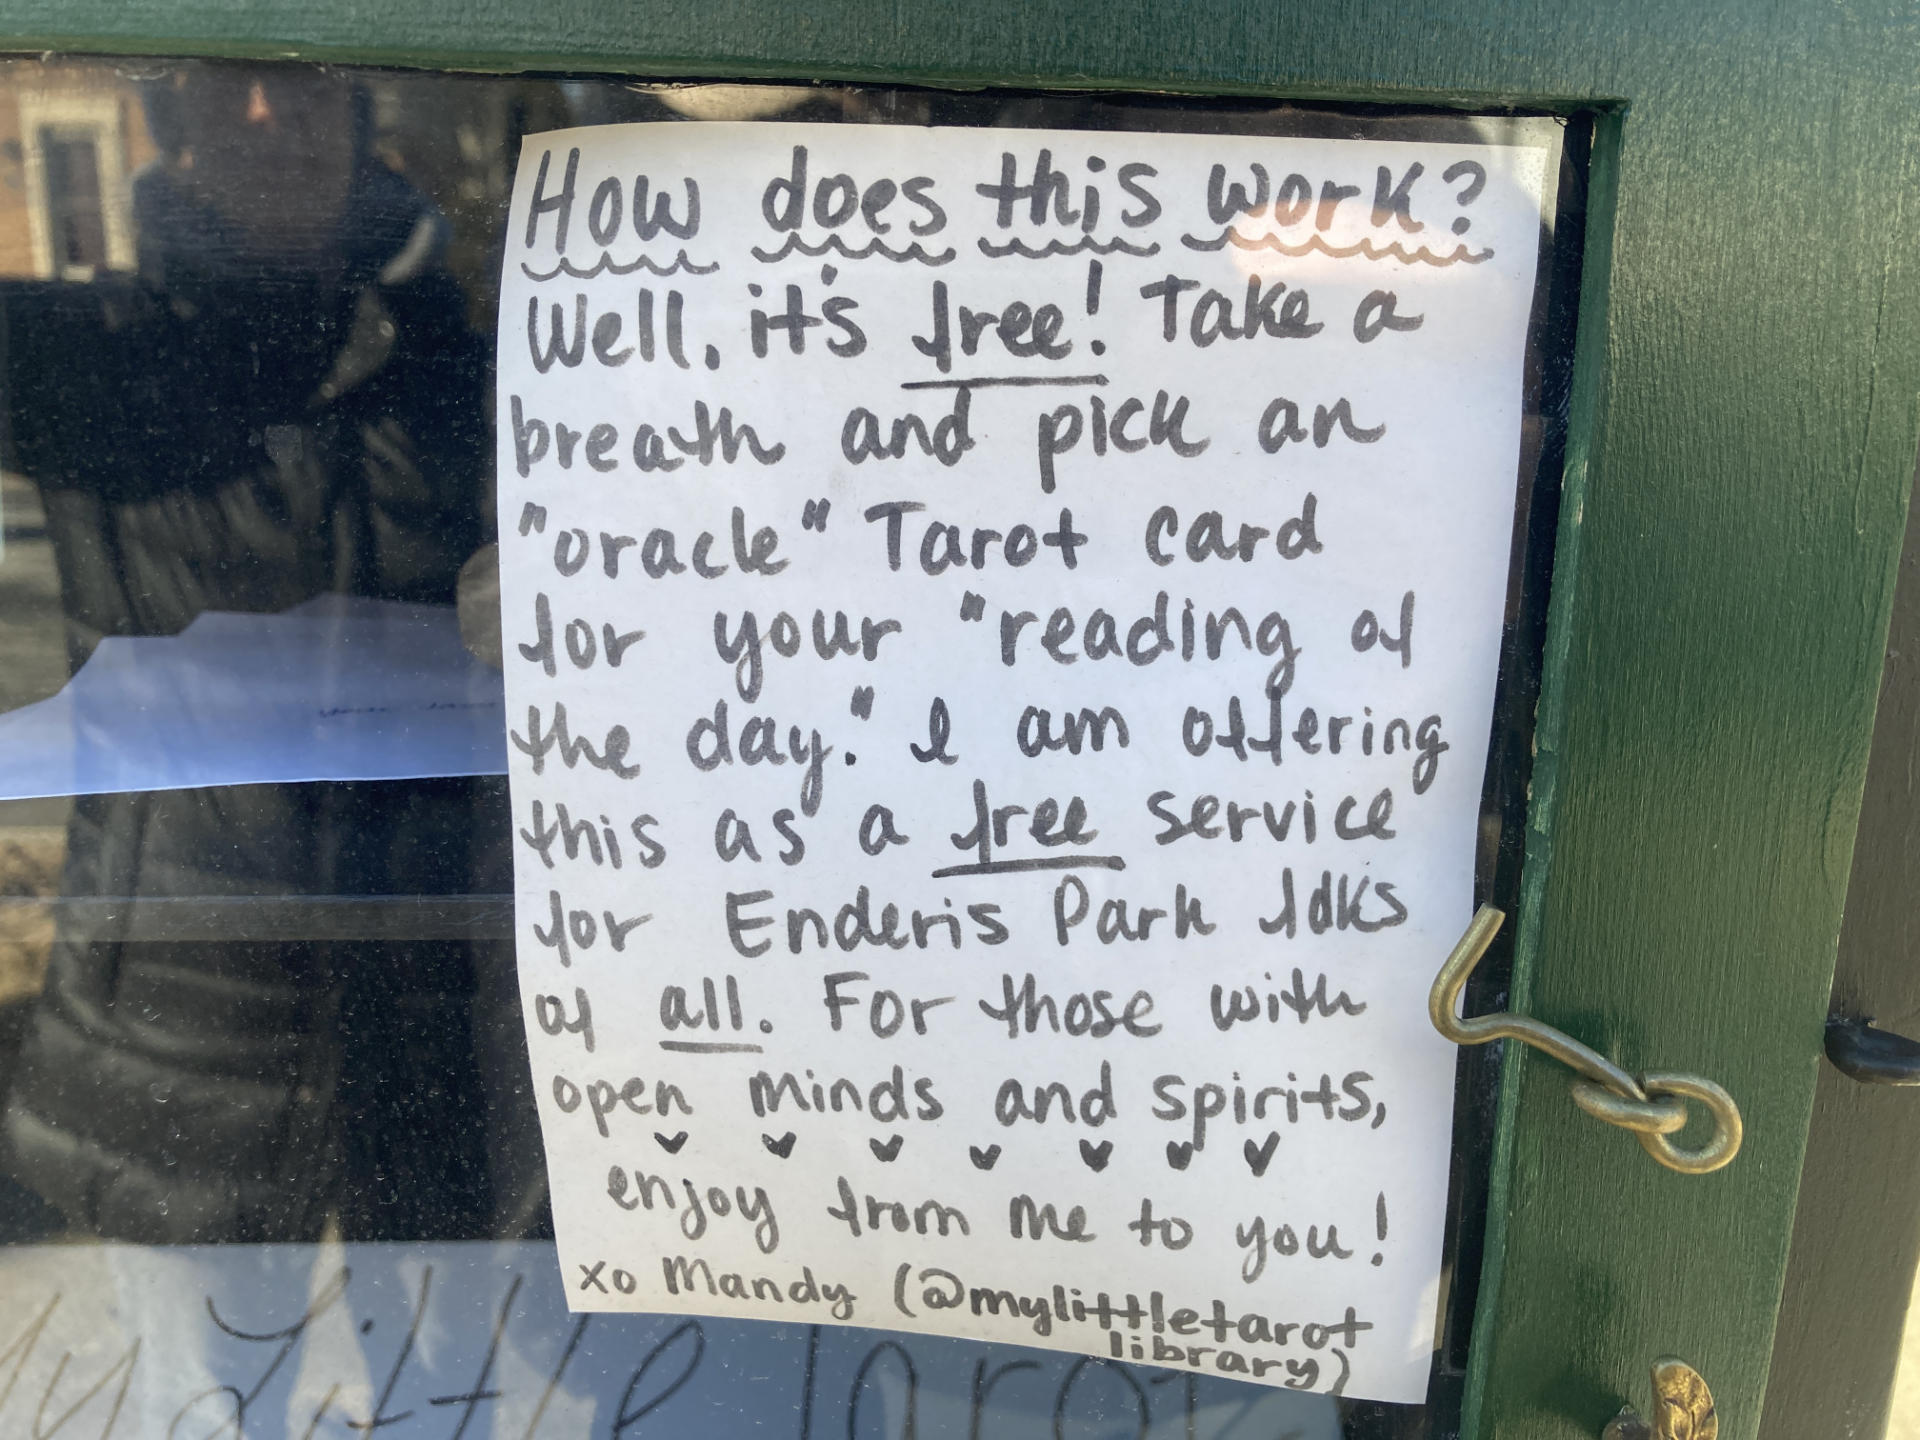 How does this work?
Well, it's free! Take a
breath and pick an
"oracle" Tarot card
for your "reading of
the day." I am offering
this as a free service
for Enderis Park folks
of all. For those with
open minds and spirits,
enjoy from me to you!
xo Mandy (@mylittletarot
library)
My Little Tarot